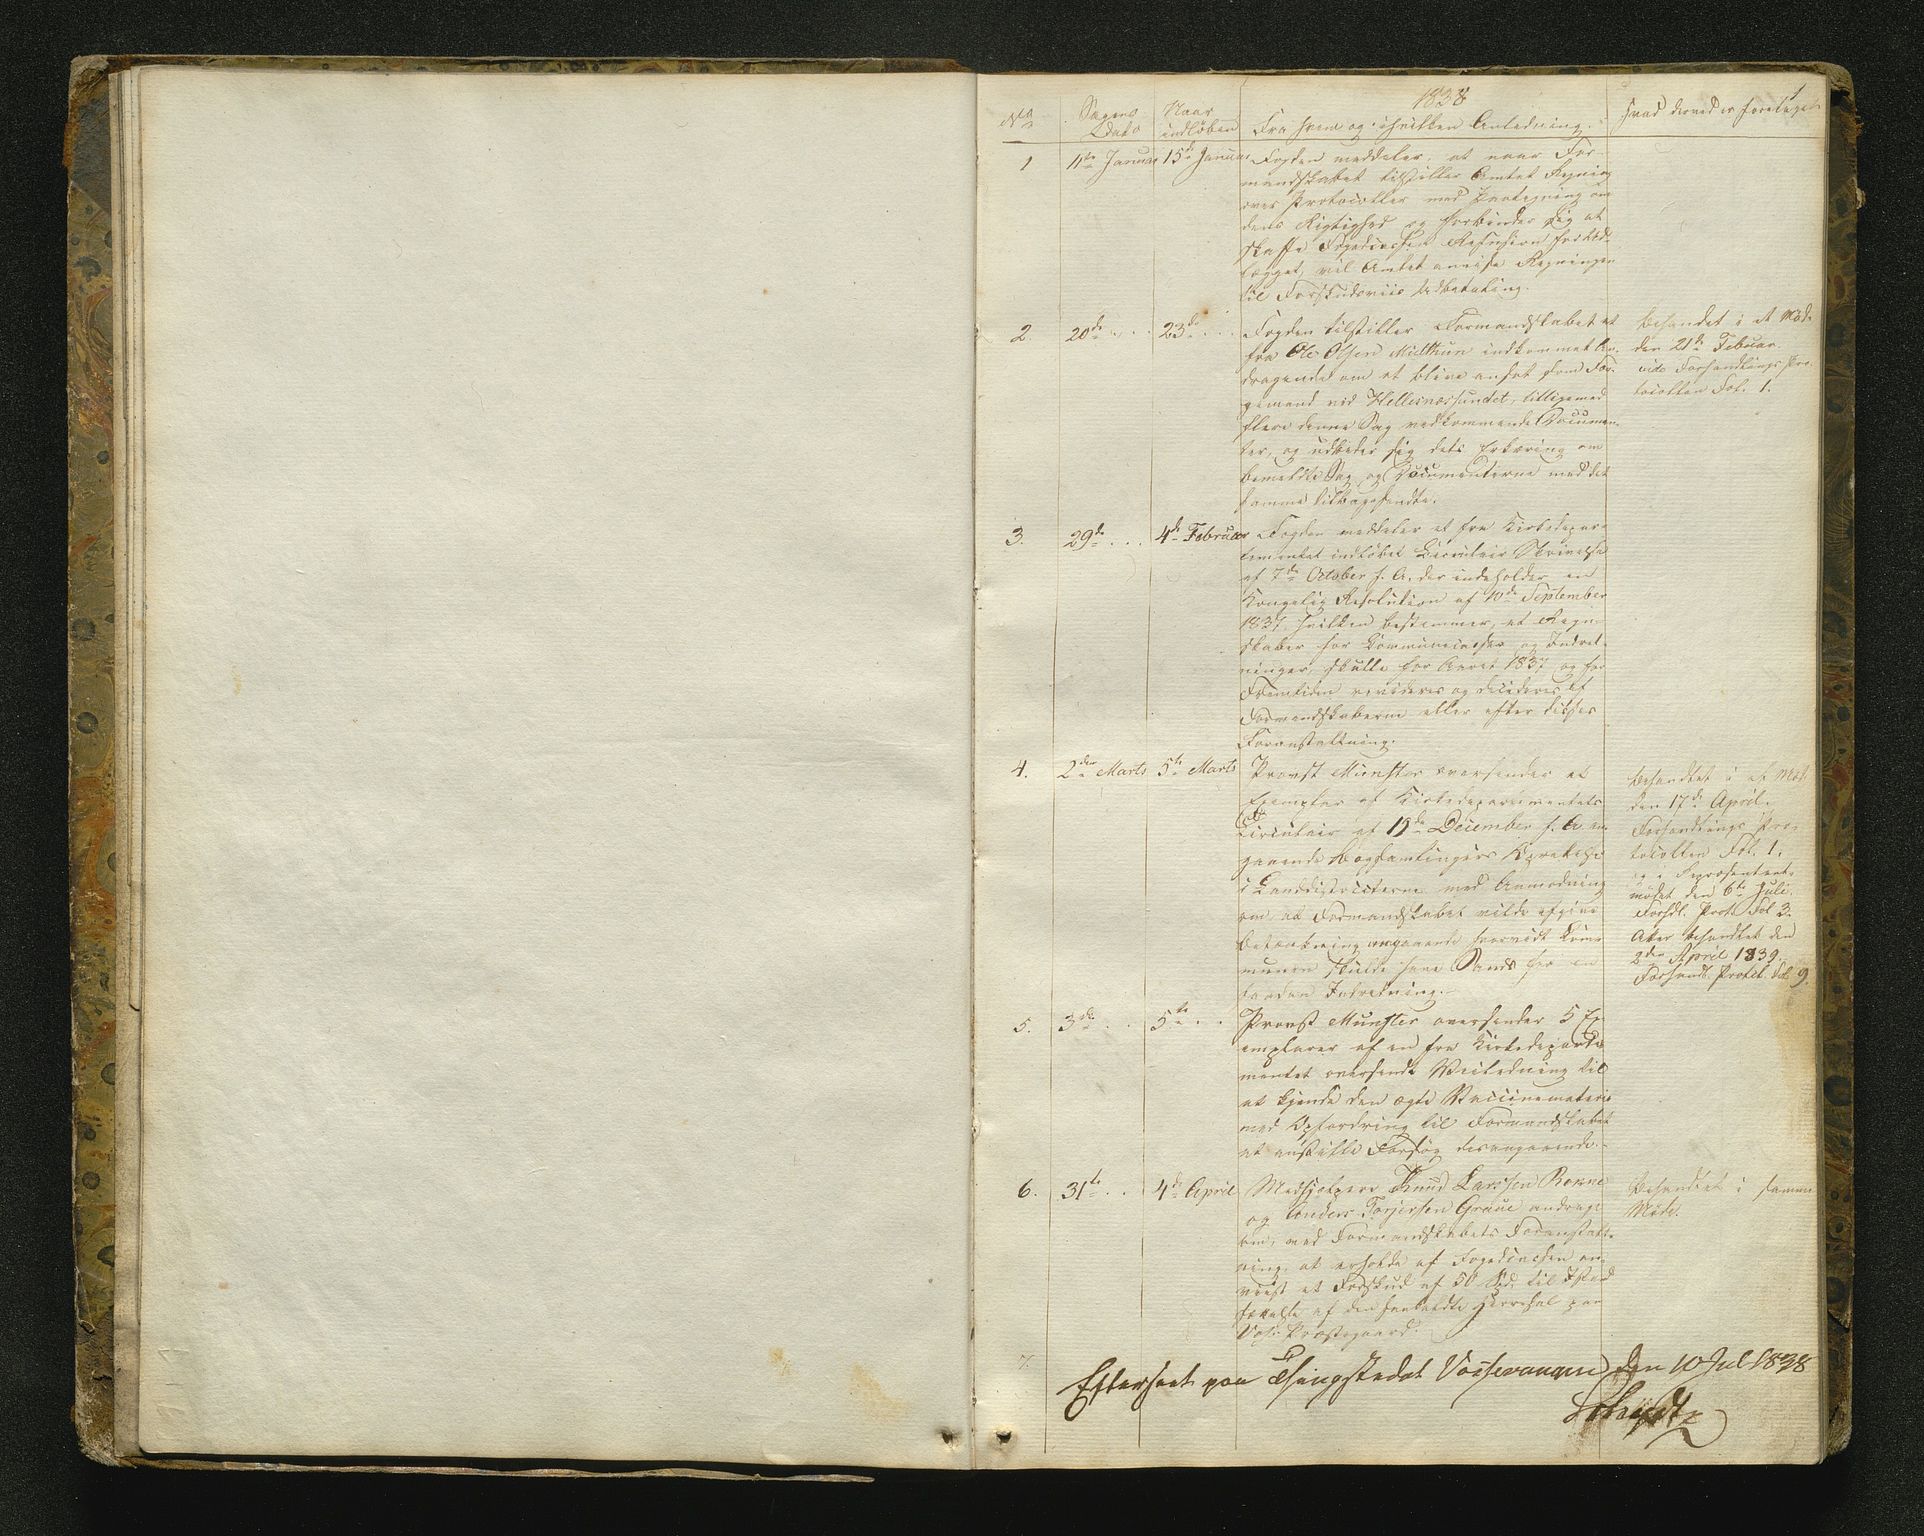 1838
1
No Sagens Dato Naar indløben Fra hvem og i hvilken Anledning. Hvad derved er foretaget
1 11te Januar 15de Januar Fogden meddeler, at naar For-
mandskabet tilstiller Amtet Regning
over Protocoller med Paategning om
dens Rigtighed og forbinder sig at
skaffe Fogedcassen Refusion forlods
lægget, vil Amtet anvise Regningen
til Forskudsviis Udbetaling.
2. 20de 23de Fogden tilstiller Formandskabet et
fra Ole Olsen Mielthun indkommet An-
dragende om at blive ansat som Fær-
gemand ved Hellesnæssundet, tilligemed
flere denne Sag vedkommende Documen-
ter, og udbeder sig dets Erkæring om
bemeldte Sag og Documenterne med det
samme tilbagesendte.
Behandlet i et Møde
den 21de Februar
vide Forhandlings Pro-
tocollen Fol. 1.
3. 29de 4de Februar Fogden meddeler et fra Kirkedepar-
tementet indløbet Circulair Skrivelse
af 7de October f. A. der indeholder en
Kongelig Resolution af 10de September
1837, hvilken bestemmer, at Regn-
skaber for Communecasser og Indret-
ninger, skulle for Aaret 1837 og for
Fremtiden revideres og decideres af
Formandskaberne eller efter disses
Foranstaltning.
4. 2den Marts 5te Marts Provst Munster oversender et
Exemplar af Kirkedepartementets
Circulair af 19de December f. A. an-
gaaende Bogsamlingers Oprettelse
i Landdistricterne med Anmodning
om, at Formandskabet vilde afgive
Betænkning angaaende hvorvidt Com-
munen skulde have Sands for en
saadan Indretning.
Behandlet i et Møde
den 17de April.
Forhandlings Pro-
tocollen Fol. 1.
og i Repræsentant-
mødet den 6te Juli
Forhdl. Prot. Fol 3.
Ater behandlet den
2den April 1839.
Forhandl. Protcl. Fol 9.
5. 3de 5te Provst Munster oversender 5 Ex-
emplarer af en fra Kirkedeparte-
mentet oversendt Veiledning til
at kjende den ægte Vaccinematerie
med Opfordring til Formandskabet
at anstille Forsøg desangaaende.
6. 31te 4de April Medhjelpere Knud Larssen Rokne
og Anders Torjersen Graue andrage
om, ved Formandskabets Foranstalt-
ning, at erholde af Fogedcassen an-
viist et Forskud af 50 Spd. til Istand-
sættelse af den saakaldte Herresal paa
Vos's Præstegaard.
Behandlet i samme
Møde.
7.
Efterseet paa Thingstedet Vossevangen den 10 Juli 1838